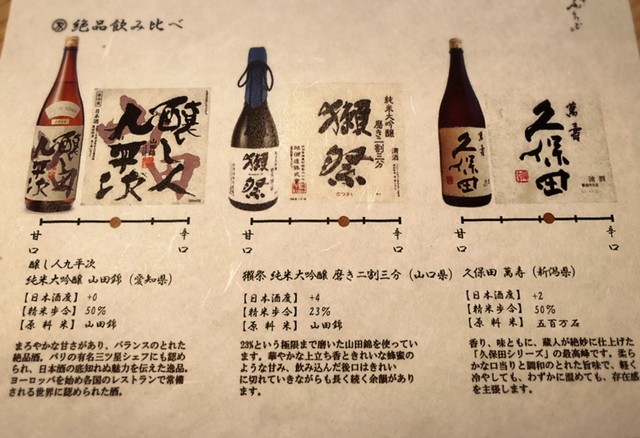 絶品飲み比べ
醸し人
九平次
日本酒
醸し人
九平次
山田錦
獺祭
純米大吟醸
磨き二割三分
獺祭
清酒
久保田
萬寿
久保田
萬寿
清酒
甘口
辛口
甘口
辛口
甘口
辛口
醸し人九平次
純米大吟醸 山田錦（愛知県）
【日本酒度】 +0
【精米歩合】 50%
【原 料 米】 山田錦
まろやかな甘さがあり、バランスのとれた
絶品酒。パリの有名三ツ星シェフにも認め
られ、日本酒の底知れぬ魅力を伝えた逸品。
ヨーロッパを始め各国のレストランで常備
される世界に認められた酒。
獺祭 純米大吟醸 磨き二割三分（山口県）
【日本酒度】 +4
【精米歩合】 23%
【原 料 米】 山田錦
23%という極限まで磨いた山田錦を使ってい
ます。華やかな上立ち香ときれいな蜂蜜の
ような甘み、飲み込んだ後口はきれい
に切れていきながらも長く続く余韻があり
ます。
久保田 萬寿（新潟県）
【日本酒度】 +2
【精米歩合】 50%
【原 料 米】 五百万石
香り、味ともに、蔵人が絶妙に仕上げた
「久保田シリーズ」の最高峰です。柔ら
かな口当りと調和のとれた旨味で、軽く
冷やしても、わずかに温めても、存在感
を主張します。